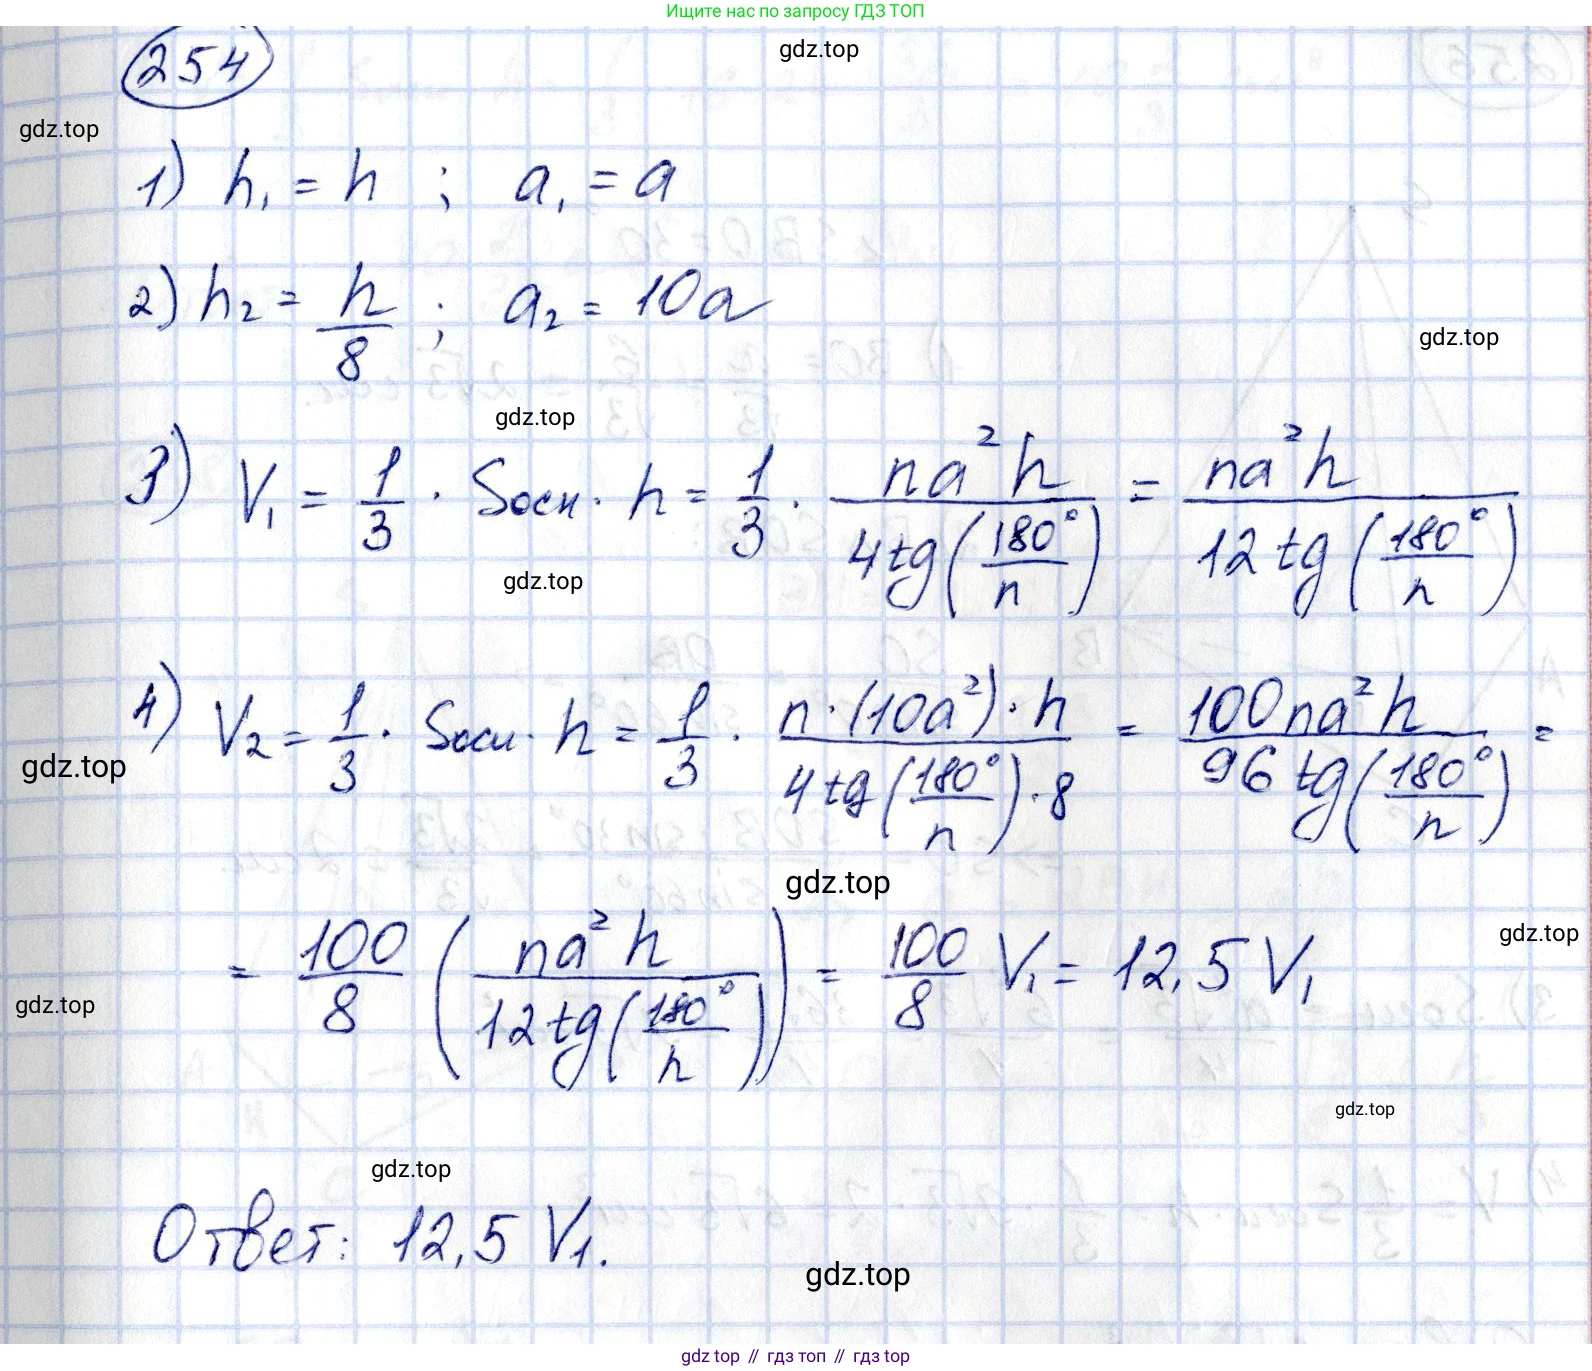 Ищите нас по запросу ГДЗ ТОП
254
gdz.top
gdz.top
1) h₁ = h ; a₁ = a
2) h₂ = h/8 ; a₂ = 10a
gdz.top
gdz.top
3) V₁ = 1/3 · Sосн · h = 1/3 · na²h/(4tg(180°/n)) = na²h/(12tg(180°/n))
gdz.top
4) V₂ = 1/3 · Sосн · h = 1/3 · n·(10a²)·h/(4tg(180°/n)·8) = 100na²h/(96tg(180°/n)) =
gdz.top
gdz.top
gdz.top
= 100/8 (na²h/(12tg(180°/n))) = 100/8 V₁ = 12,5 V₁
gdz.top
gdz.top
gdz.top
Ответ: 12,5 V₁.
gdz.top
gdz top // гдз топ // гдз top